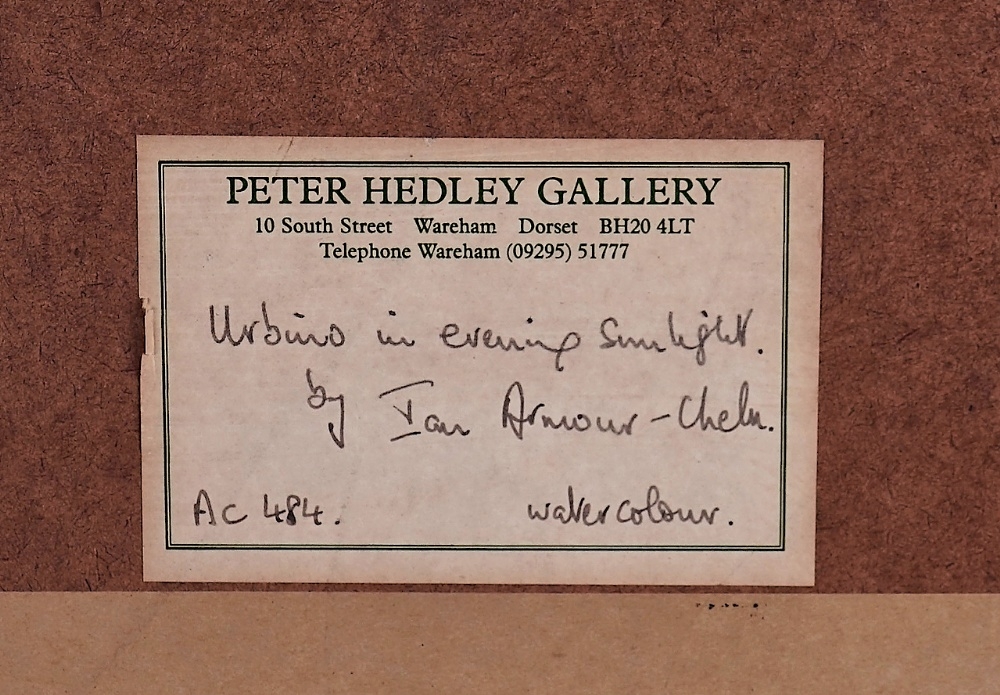 PETER HEDLEY GALLERY
10 South Street Wareham Dorset BH20 4LT
Telephone Wareham (09295) 51777
Urbino in evening sunlight.
by Ian Armour-Chelu.
Ac 484. watercolour.